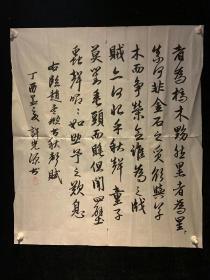 者為槁木黟然黑者為星
奈何非金石之質欲與草
木而爭榮念誰為之戕
賊亦何恨乎秋聲童子
莫對垂頭而睡但聞四壁
蟲聲唧唧如助予之歎息
右臨趙孟頫書秋聲賦
丁酉孟夏 許光源書